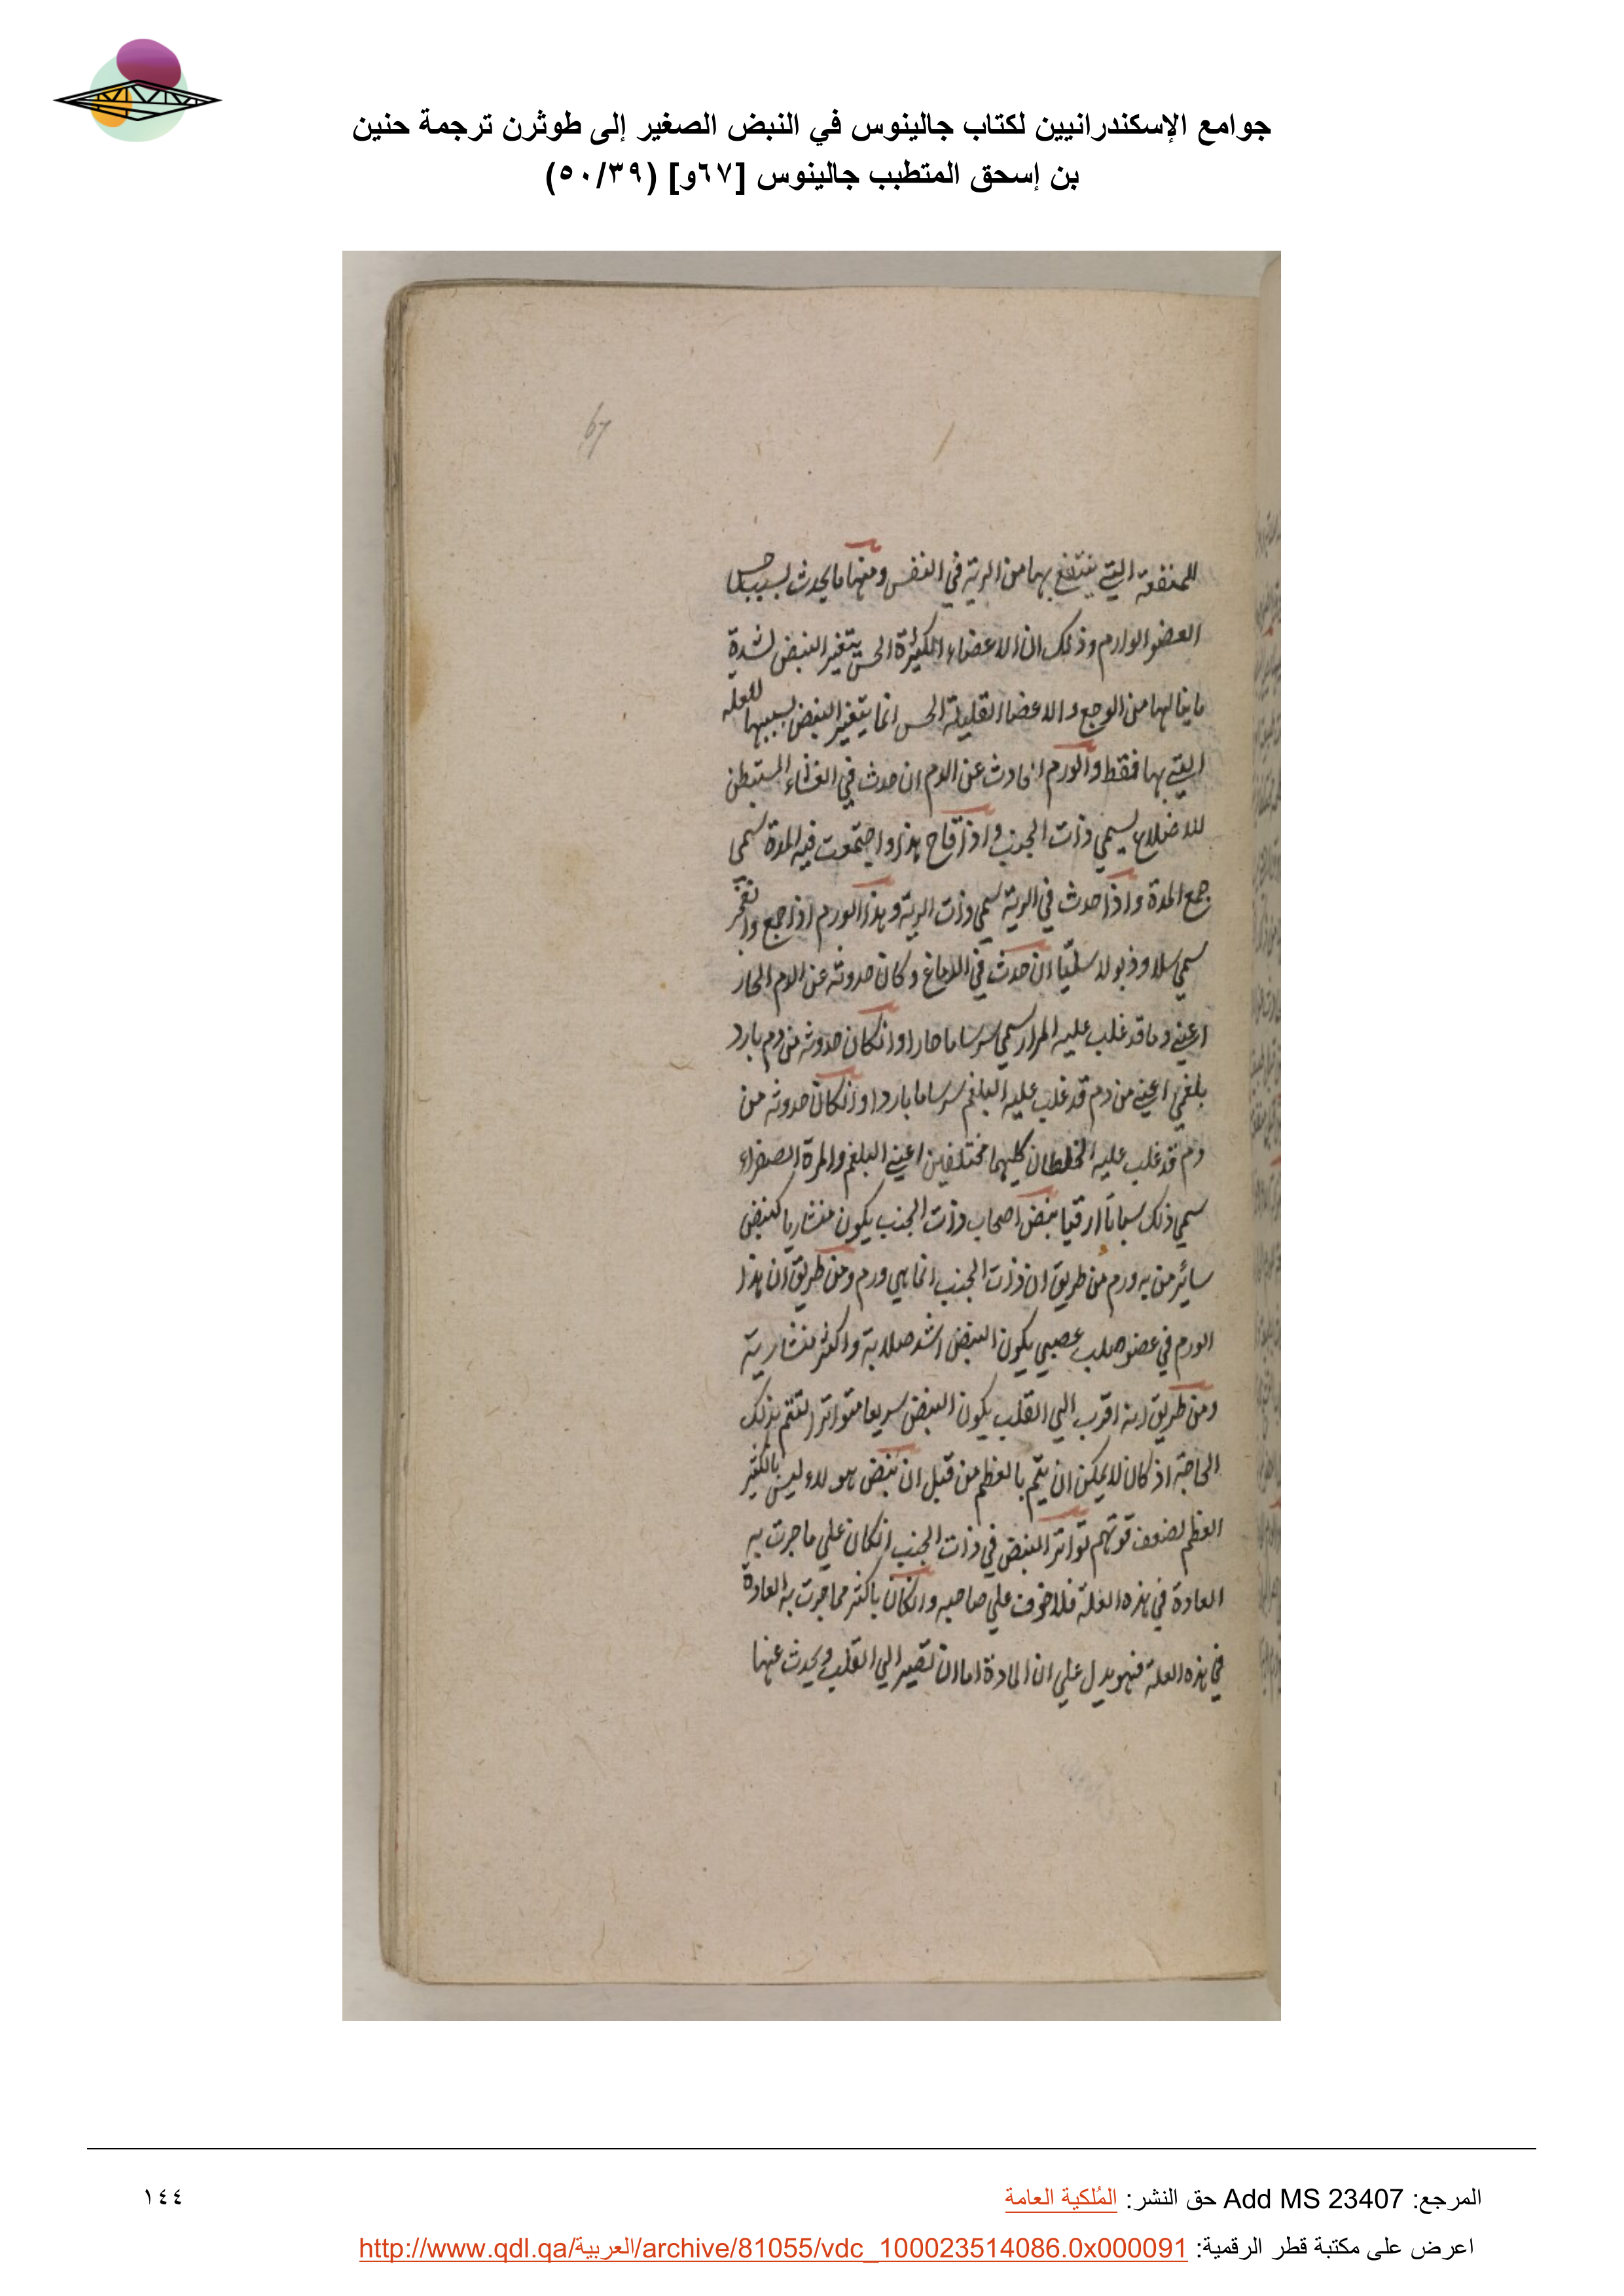 جوامع الإسكندرانيين لكتاب جالينوس في النبض الصغير إلى طوثرن ترجمة حنين
بن إسحق المتطبب جالينوس [٦٧و] (٥٠/٣٩)
67
للمنفعة التي ينتفع بها من الرية في النفس ومنها ما يحدث بسبب حس
العضو الوارم وذلك ان الاعضاء الكثيرة الحس يتغير النبض لشدة
ما ينالها من الوجع والاعضا القليلة الحس انما يتغير النبض بسببها للعلة
التي بها فقط والورم الحادث عن الدم ان حدث في الغشاء المستبطن
للاضلاع يسمي ذات الجنب واذا قاح هذا واجتمعت فيه المدة سمي
جمع المدة واذا حدث في الرية سمي ذات الرية وهذا الورم اذا جمع وانفجر
سمي سلا وذبولا سليا ان حدث في الدماغ وكان حدوثه عن الدم الحار
اعني دما قد غلب عليه المرار سمي سرساما حارا وانكان حدوثه من دم بارد
بلغمي اعني من دم قد غلب عليه البلغم سرساما باردا وانكان حدوثه من
دم قد غلب عليه الخلطان كليهما مختلفين اعني البلغم والمرة الصفراء
سمي ذلك سباتا ارقيا نبض اصحاب ذات الجنب يكون منشاريا كنبض
سائر من به ورم من طريق ان ذات الجنب انما هي ورم ومن طريق ان هذا
الورم في عضو صلب عصبي يكون النبض اشد صلابة واكثر منشارية
ومن طريق انه اقرب الي القلب يكون النبض سريعا متواترا لتتم بذلك
الحاجة اذ كان لا يمكن ان يتم بالعظم من قبل ان نبض هولاء ليس بالكثير
العظم لضعف قوتهم تواتر النبض في ذات الجنب انكان علي ما جرت به
العادة في هذه العلة فلا خوف علي صاحبه وانكان باكثر مما جرت به العادة
في هذه العلة فهو يدل علي ان المادة اما ان تصير الي القلب ويحدث عنها
المرجع: Add MS 23407 حق النشر: المُلكية العامة
١٤٤
اعرض على مكتبة قطر الرقمية: http://www.qdl.qa/العربية/archive/81055/vdc_100023514086.0x000091